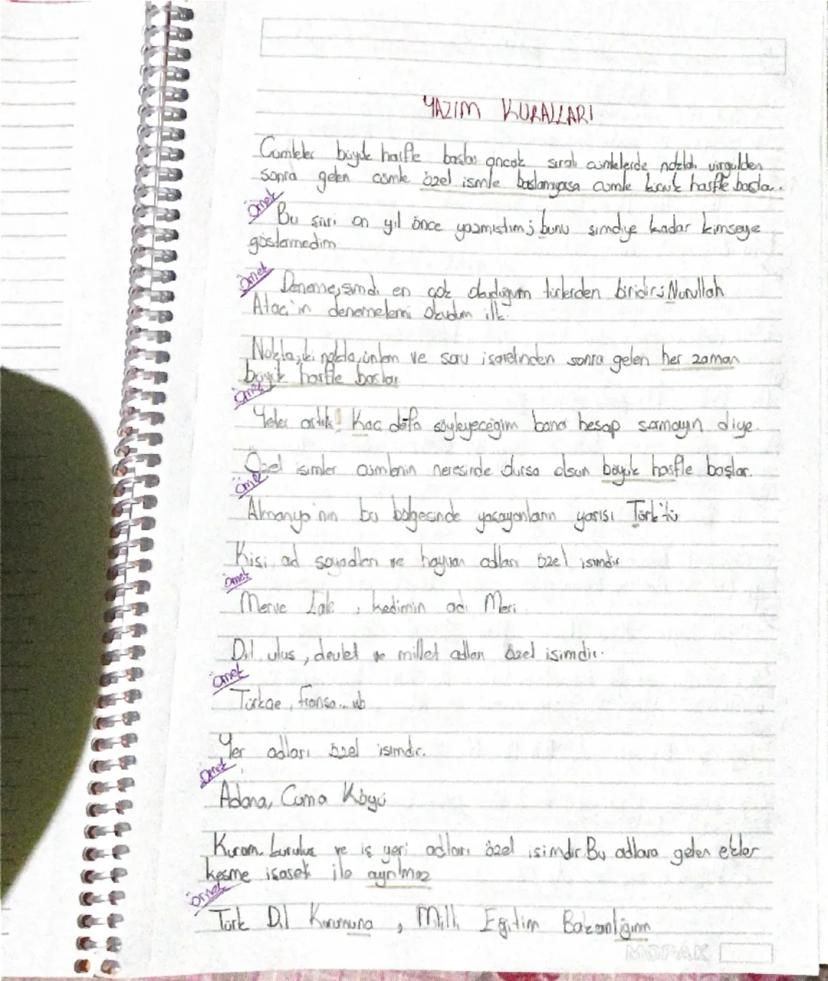 YAZIM KURALLARI
Cümleler büyük harfle başlar ancak sıralı cümlelerde noktalı virgülden
sonra gelen cümle özel isimle başlamıyosa cümle küçük harfle başlar.
Örnek
Bu şiiri on yıl önce yazmıştım; bunu şimdiye kadar kimseye
göstermedim
Örnek
Deneme, şimdi en çok okuduğum türlerden biridir; Nurullah
Ataç'ın denemelerini okudum ilk.
Nokta, iki nokta, ünlem ve soru işaretinden sonra gelen her zaman
büyük harfle başlar
Örnek
Yeter artık! Kaç defa söyleyeceğim bana hesap sormayın diye.
Özel isimler cümlenin neresinde olursa olsun büyük harfle başlar.
Örnek
Almanya'nın bu bölgesinde yaşayanların yarısı Türk'tü
Kişi ad soyadları ve hayvan adları özel isimdir
Örnek
Merve , kedimin adı
Dil, ulus, devlet ve millet adları özel isimdir.
Örnek
Türkçe, Fransa... vb
Yer adları özel isimdir.
Örnek
Adana, Cuma Köyü
Kurum, kuruluş ve iş yeri adları özel isimdir. Bu adlara gelen ekler
kesme işareti ile ayrılmaz
Örnek
Türk Dil Kurumuna, Milli Eğitim Bakanlığının
MOPAK